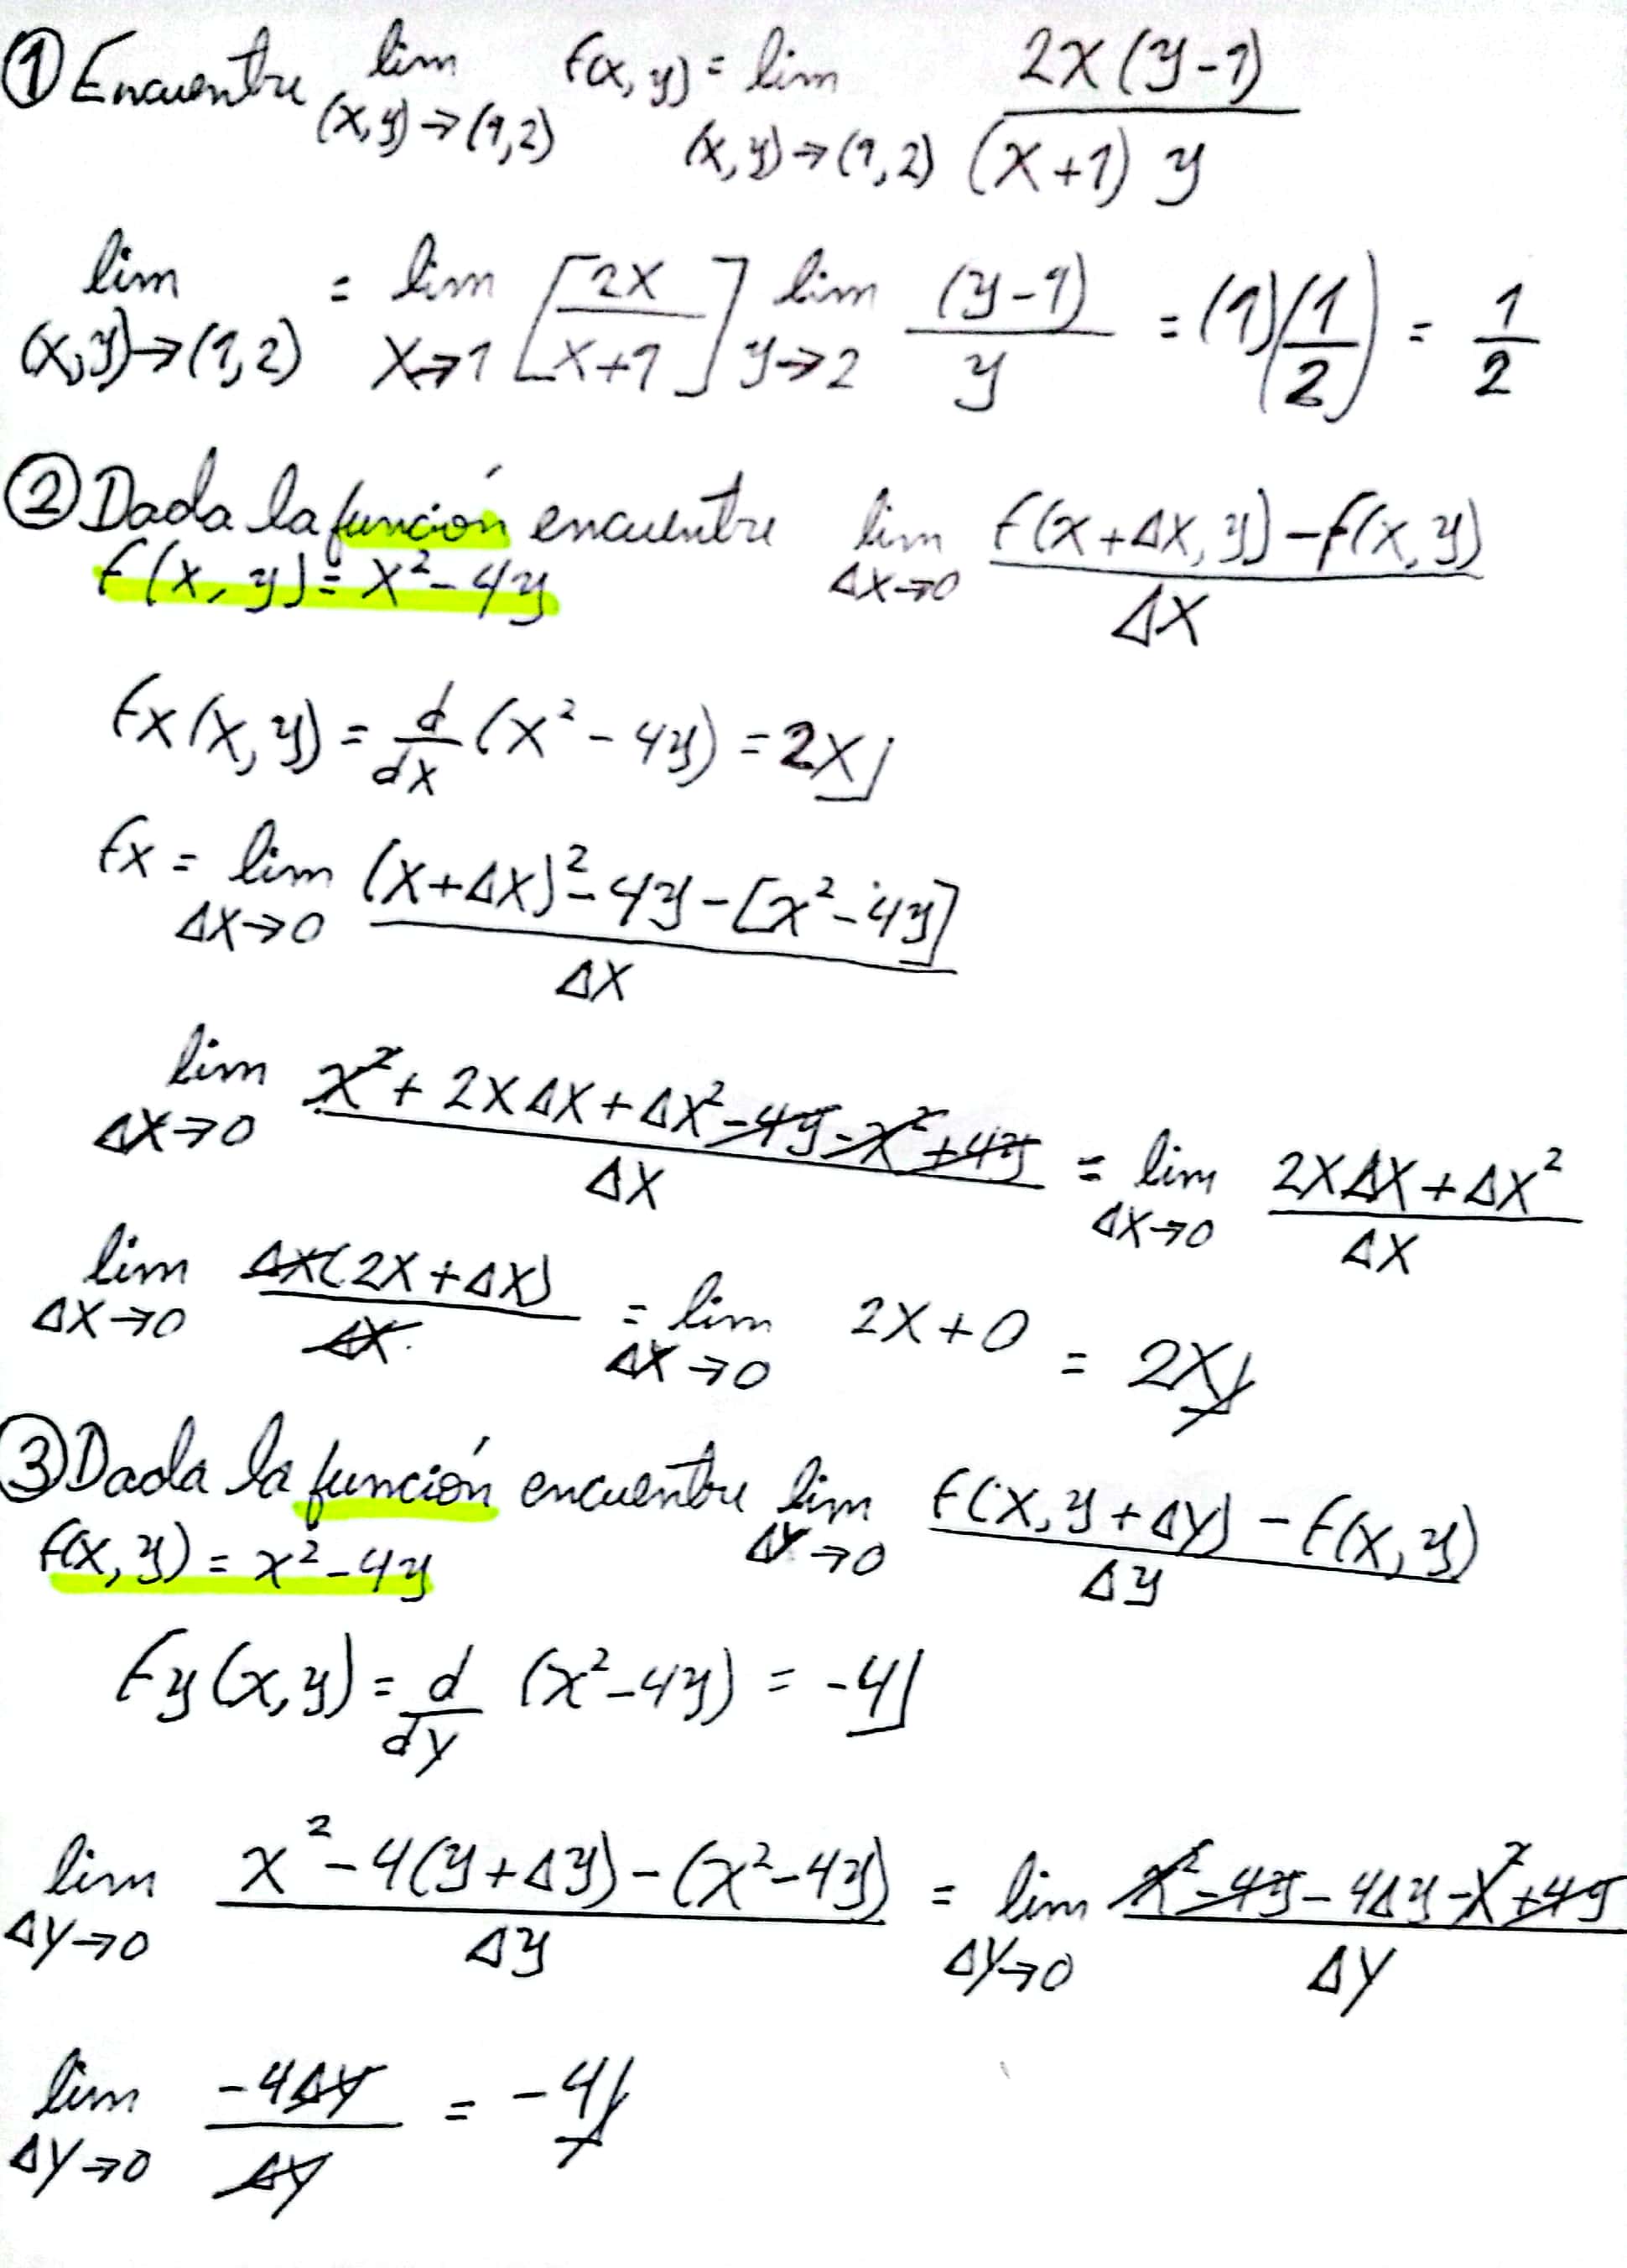 ① Encuentre lim (x,y)→(1,2) f(x,y) = lim (x,y)→(1,2) 2x(y-1) / (x+1)y
lim (x,y)→(1,2) = lim x→1 [2x / x+1] lim y→2 (y-1) / y = (1)(1/2) = 1/2
② Dada la función encuentre lim Δx→0 f(x+Δx, y) - f(x, y) / Δx
f(x, y) = x² - 4y
fx(x, y) = d/dx (x² - 4y) = 2x
fx = lim Δx→0 (x+Δx)² - 4y - [x² - 4y] / Δx
lim Δx→0 x² + 2xΔx + Δx² - 4y - x² + 4y / Δx = lim Δx→0 2xΔx + Δx² / Δx
lim Δx→0 Δx(2x + Δx) / Δx = lim Δx→0 2x + 0 = 2x
③ Dada la función encuentre lim Δy→0 f(x, y + Δy) - f(x, y) / Δy
f(x, y) = x² - 4y
fy(x, y) = d/dy (x² - 4y) = -4
lim Δy→0 x² - 4(y + Δy) - (x² - 4y) / Δy = lim Δy→0 x² - 4y - 4Δy - x² + 4y / Δy
lim Δy→0 -4Δy / Δy = -4